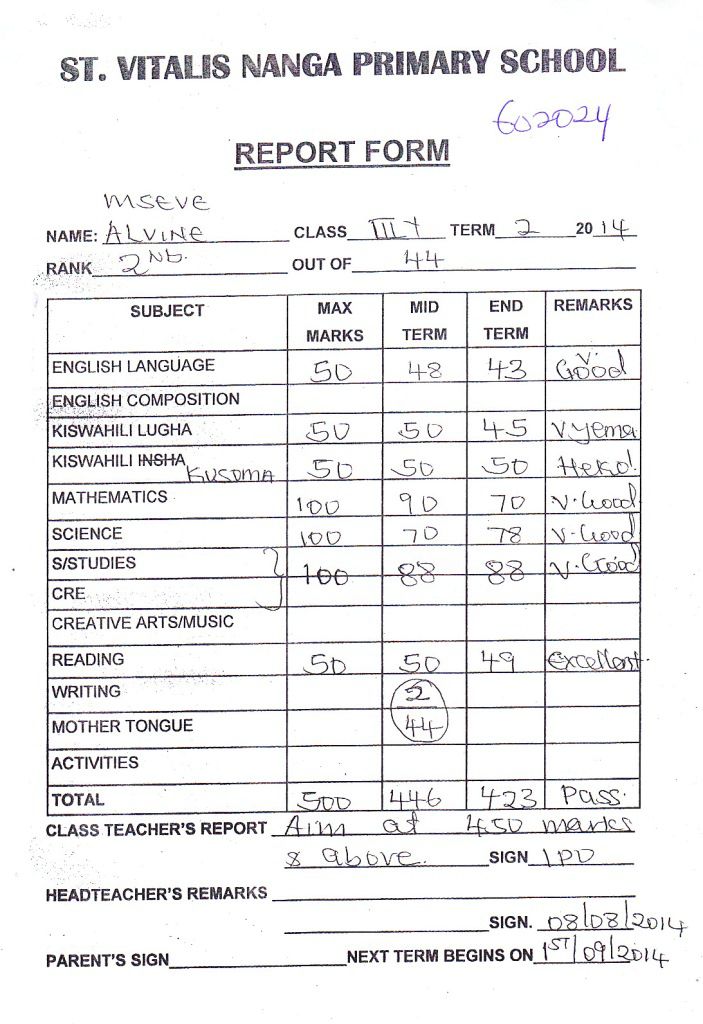 ST. VITALIS NANGA PRIMARY SCHOOL
602024
REPORT FORM
MSEVE
NAME: ALVINE CLASS III Y TERM 2 2014
RANK 2ND. OUT OF 44
SUBJECT MAX MARKS MID TERM END TERM REMARKS
ENGLISH LANGUAGE 50 48 43 V. Good
ENGLISH COMPOSITION
KISWAHILI LUGHA 50 50 45 V. yema
KISWAHILI INSHA KUSOMA 50 50 50 Heko!
MATHEMATICS 100 90 70 V. Good
SCIENCE 100 70 78 V. Good
S/STUDIES 100 88 88 V. Good
CRE
CREATIVE ARTS/MUSIC
READING 50 50 49 Excellent.
WRITING 2
MOTHER TONGUE 44
ACTIVITIES
TOTAL 500 446 423 Pass.
CLASS TEACHER'S REPORT Aim at 450 marks
& above. SIGN
HEADTEACHER'S REMARKS
SIGN. 08/08/2014
PARENT'S SIGN NEXT TERM BEGINS ON 1ST/09/2014